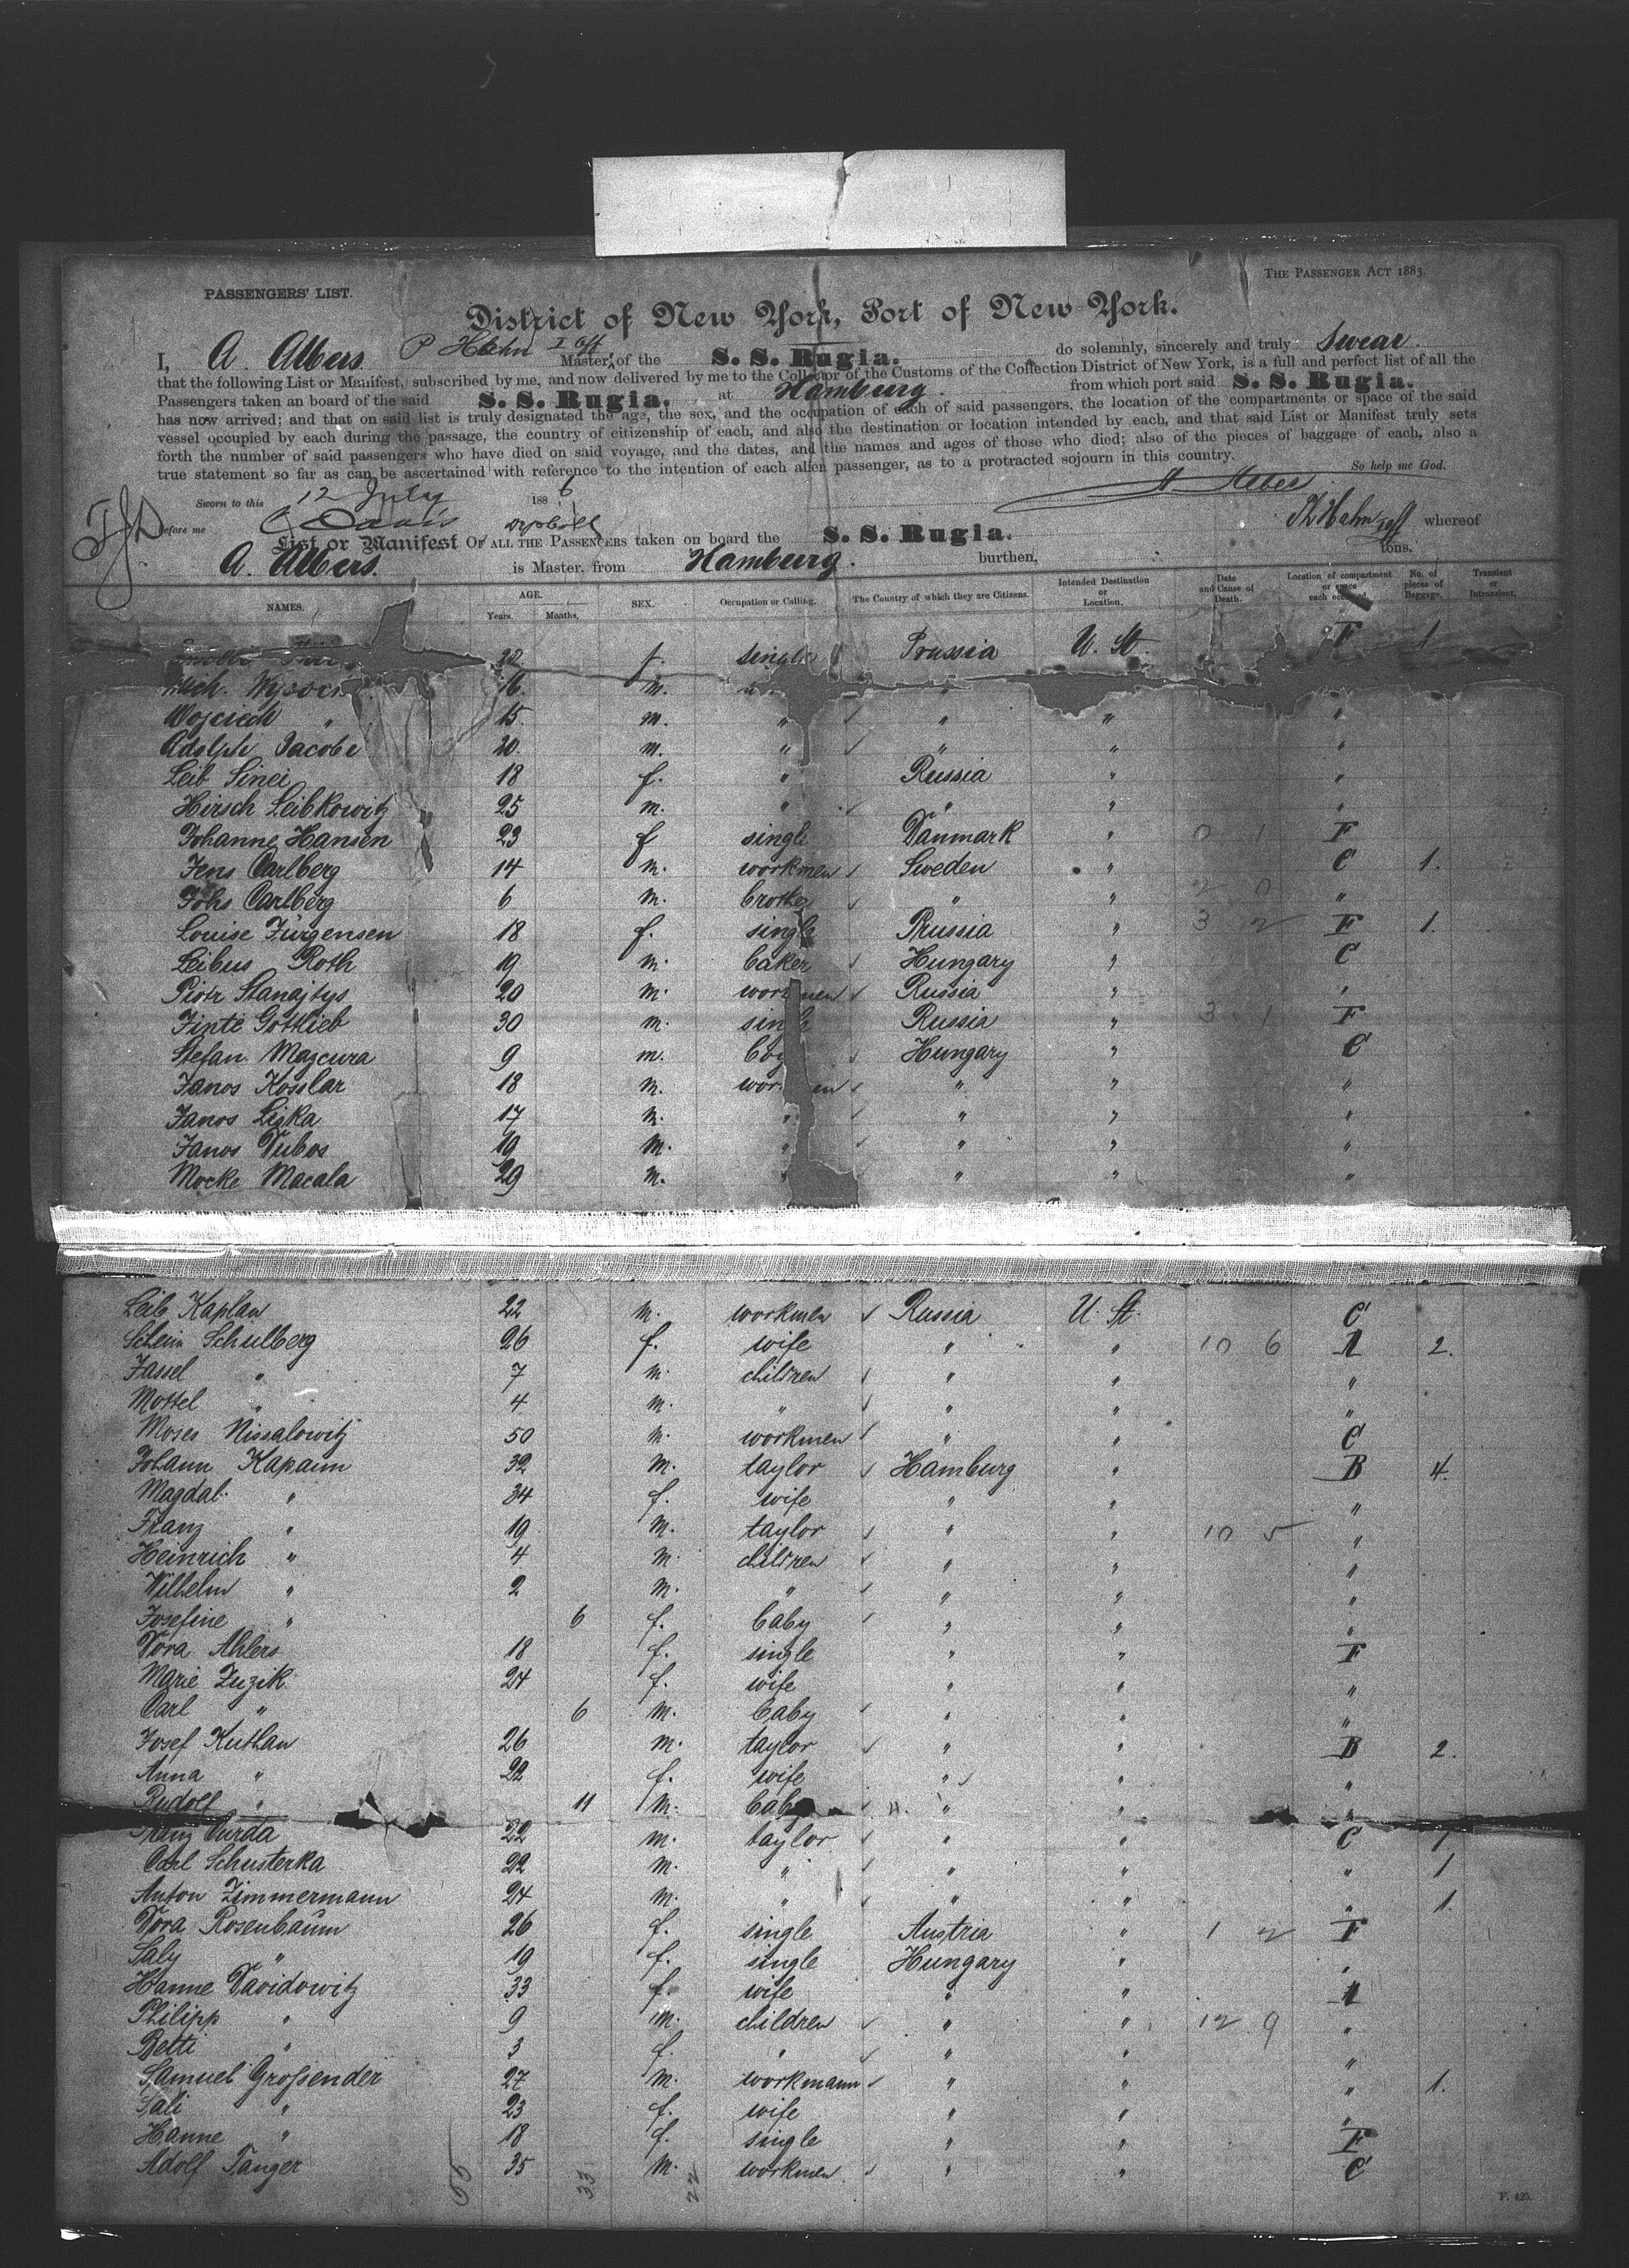 THE PASSENGER ACT 1883.
PASSENGERS' LIST.
District of New York, Port of New York.
I, A. Albers. P Hahn I Off Master, of the S. S. Rugia. do solemnly, sincerely and truly swear.
that the following List or Manifest, subscribed by me, and now delivered by me to the Collector of the Customs of the Collection District of New York, is a full and perfect list of all the
Passengers taken an board of the said S. S. Rugia. at Hamburg. from which port said S. S. Rugia.
has now arrived; and that on said list is truly designated the age, the sex, and the occupation of each of said passengers, the location of the compartments or space of the said
vessel occupied by each during the passage, the country of citizenship of each, and also the destination or location intended by each, and that said List or Manifest truly sets
forth the number of said passengers who have died on said voyage, and the dates, and the names and ages of those who died; also of the pieces of baggage of each, also a
true statement so far as can be ascertained with reference to the intention of each alien passenger, as to a protracted sojourn in this country. So help me God.
Sworn to this 12 July 1886
Before me Davis
List or Manifest OF ALL THE PASSENGERS taken on board the S. S. Rugia. whereof
A. Albers. is Master, from Hamburg. burthen, tons.
NAMES. AGE. Years. Months. SEX. Occupation or Calling. The Country of which they are Citizens. Intended Destination or Location. Date and Cause of Death. Location of compartment or space each occupied. No. of pieces of Baggage. Transient or Intransient.
22 f. single Prussia U. St. F 1
16. m. "
Wojciech " 15. m. " " " "
Adolph Jacobe 20. m. " " " "
Leib Sinei 18 f. " Russia " "
Hirsch Leibkowitz 25 m. " " " "
Johanne Hansen 23 f single Danmark " 0 1 F
Jens Carlberg 14 m. workmen Sweden " C 1.
Johs Carlberg 6 m. brother " " 2 0 "
Louise Jürgensen 18 f. single Prussia " 3 2 F 1.
Leibus Roth 19 m. baker Hungary " C
Piotr Stanajtys 20 m. workmen Russia " "
Finte Gottlieb 30 m. single Russia " 3 1 F
Stefan Mazcura 9 m. boy Hungary " C
Janos Kosslar 18 m. workmen " " "
Janos Liska 17 m. " " " "
Janos Dubos 19 m. " " " "
Mocke Macala 29 m. " " " "
Leib Kaplan 22 m. workmen Russia U. St. C
Schein Schulberg 26 f. wife " " 10 6 A 2.
Jassel " 7 m. children " " "
Mottel " 4 m. " " " "
Moses Nissalowitz 50 m. workmen " " C
Johann Kapaun 32 m. taylor Hamburg " B 4.
Magdal. " 34 f. wife " " "
Franz " 19 m. taylor " " 10 5 "
Heinrich " 4 m. children " " "
Wilhelm " 2 m. " " " "
Josefine " 6 f. baby " " "
Dora Ahlers 18 f. single " " F
Marie Zuzik 24 f. wife " " "
Carl " 6 m. baby " " "
Josef Kuthan 26 m. taylor " " B 2.
Anna " 22 f. wife " " "
Rudolf " 11 m. baby " " "
Franz Curda 22 m. taylor " " C 1
Carl Schusterka 22 m. " " " " 1
Anton Zimmermann 24 m. " " " " 1.
Dora Rosenbaum 26 f. single Austria " 1 2 F
Saly " 19 f. single Hungary " "
Hanne Davidowitz 33 f. wife " " A
Philipp " 9 m. children " " 12 9 "
Betti " 3 f. " " " "
Samuel Großender 27 m. workmann " " " 1.
Sali " 23 f. wife " " "
Hanne " 18 f. single " " F
Adolf Tanger 35 m. workmen " " C
55 33 22
F. 425.